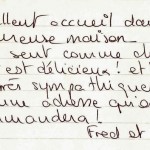 ellent accueil da
reuse maison.
sent comme c
est délicieux! et
rès sympathique
une adresse qu'o
mmandera!
Fred et